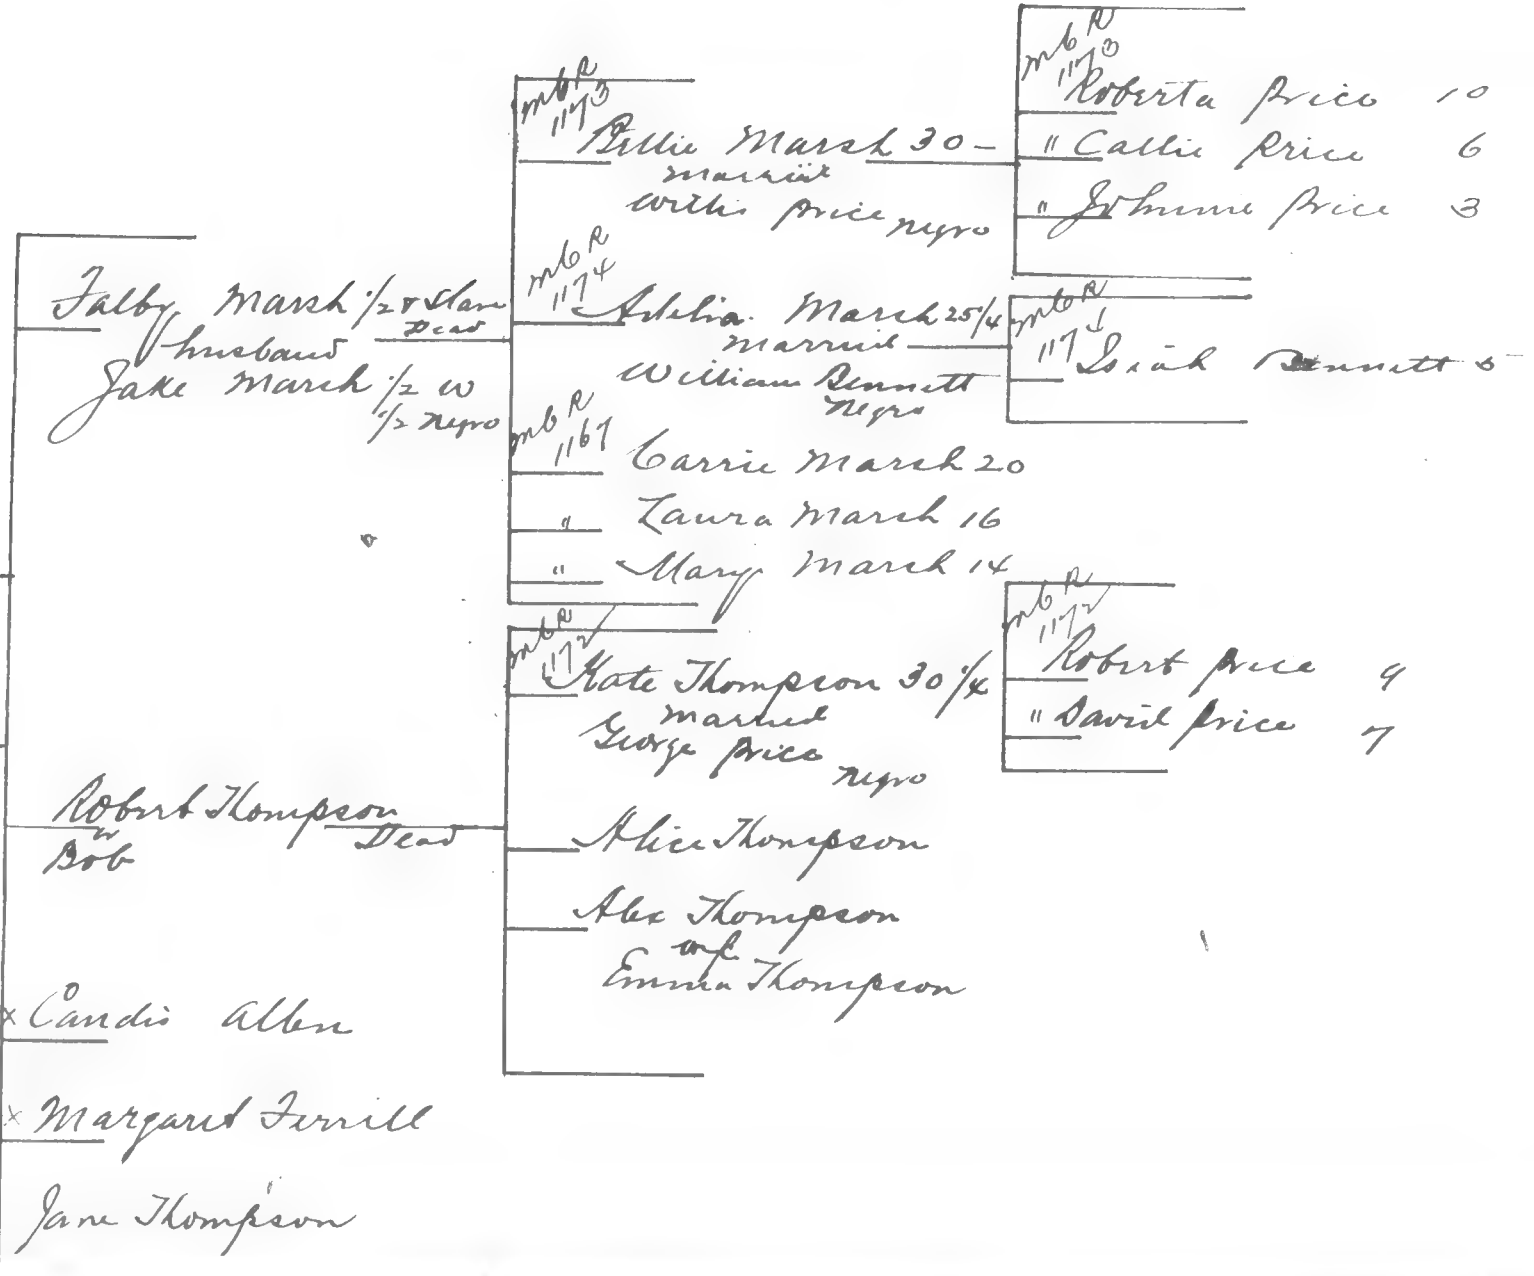 Falby Marsh 1/2 & Slave
Dead
husband
Jake Marsh 1/2 W
1/2 Negro
Robert Thompson
Dead
or
Bob
x Candis Allen
x Margaret Terrill
Jane Thompson
MCR
1173
Bellie Marsh 30 -
Married
Willis Price Negro
MCR
1174
Adelia Marsh 25 1/4
Married
William Bennett
Negro
MCR
1167
Carrie Marsh 20
" Laura Marsh 16
" Mary Marsh 14
MCR
1172
Kate Thompson 30 1/4
Married
George Price
Negro
Alice Thompson
Alex Thompson
wife
Emma Thompson
MCR
1173
Roberta Price 10
" Callie Price 6
" Johnnie Price 3
MCR
1174
Isiah Bennett 5
MCR
1172
Robert Price 9
" David Price 7